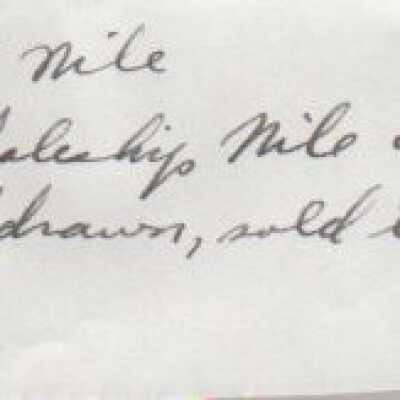 Nile
aleship Nile
drawn, sold